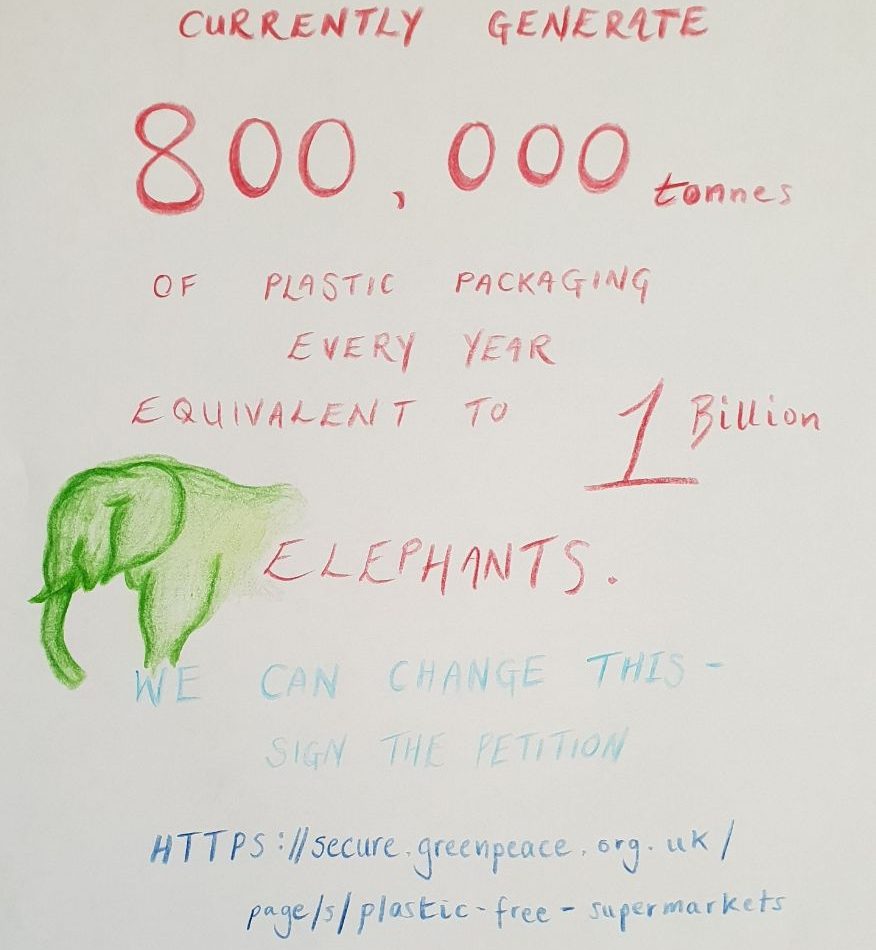 CURRENTLY GENERATE
800,000 tonnes
OF PLASTIC PACKAGING
EVERY YEAR
EQUIVALENT TO 1 Billion
ELEPHANTS.
WE CAN CHANGE THIS -
SIGN THE PETITION
HTTPS://secure.greenpeace.org.uk/
page/s/plastic-free-supermarkets